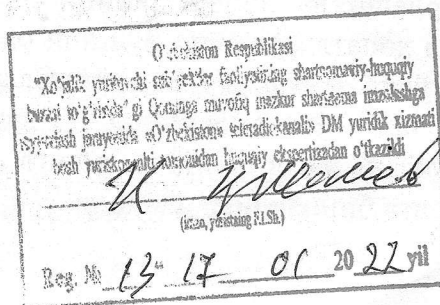 O'zbekiston Respublikasi
"Xo'jalik yurituvchi sub'yektlar faoliyatining shartnomaviy-huquqiy
bazasi to'g'risida"gi Qonunga muvofiq mazkur shartnoma imzolashga
tayyorlash jarayonida «O'zbekiston» teleradiokanali» DM yuridik xizmati
bosh yuriskonsulti tomonidan huquqiy ekspertizadan o'tkazildi
(imzo, yuristning F.I.Sh.)
Reg. № 13 "17 01 2022 yil